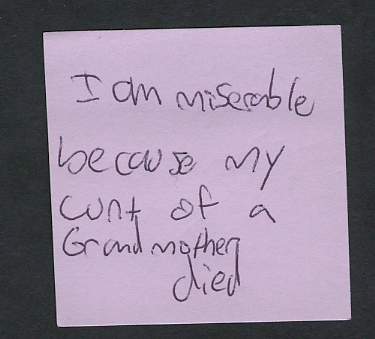 I am miserable
because my
cunt of a
Grandmother
died